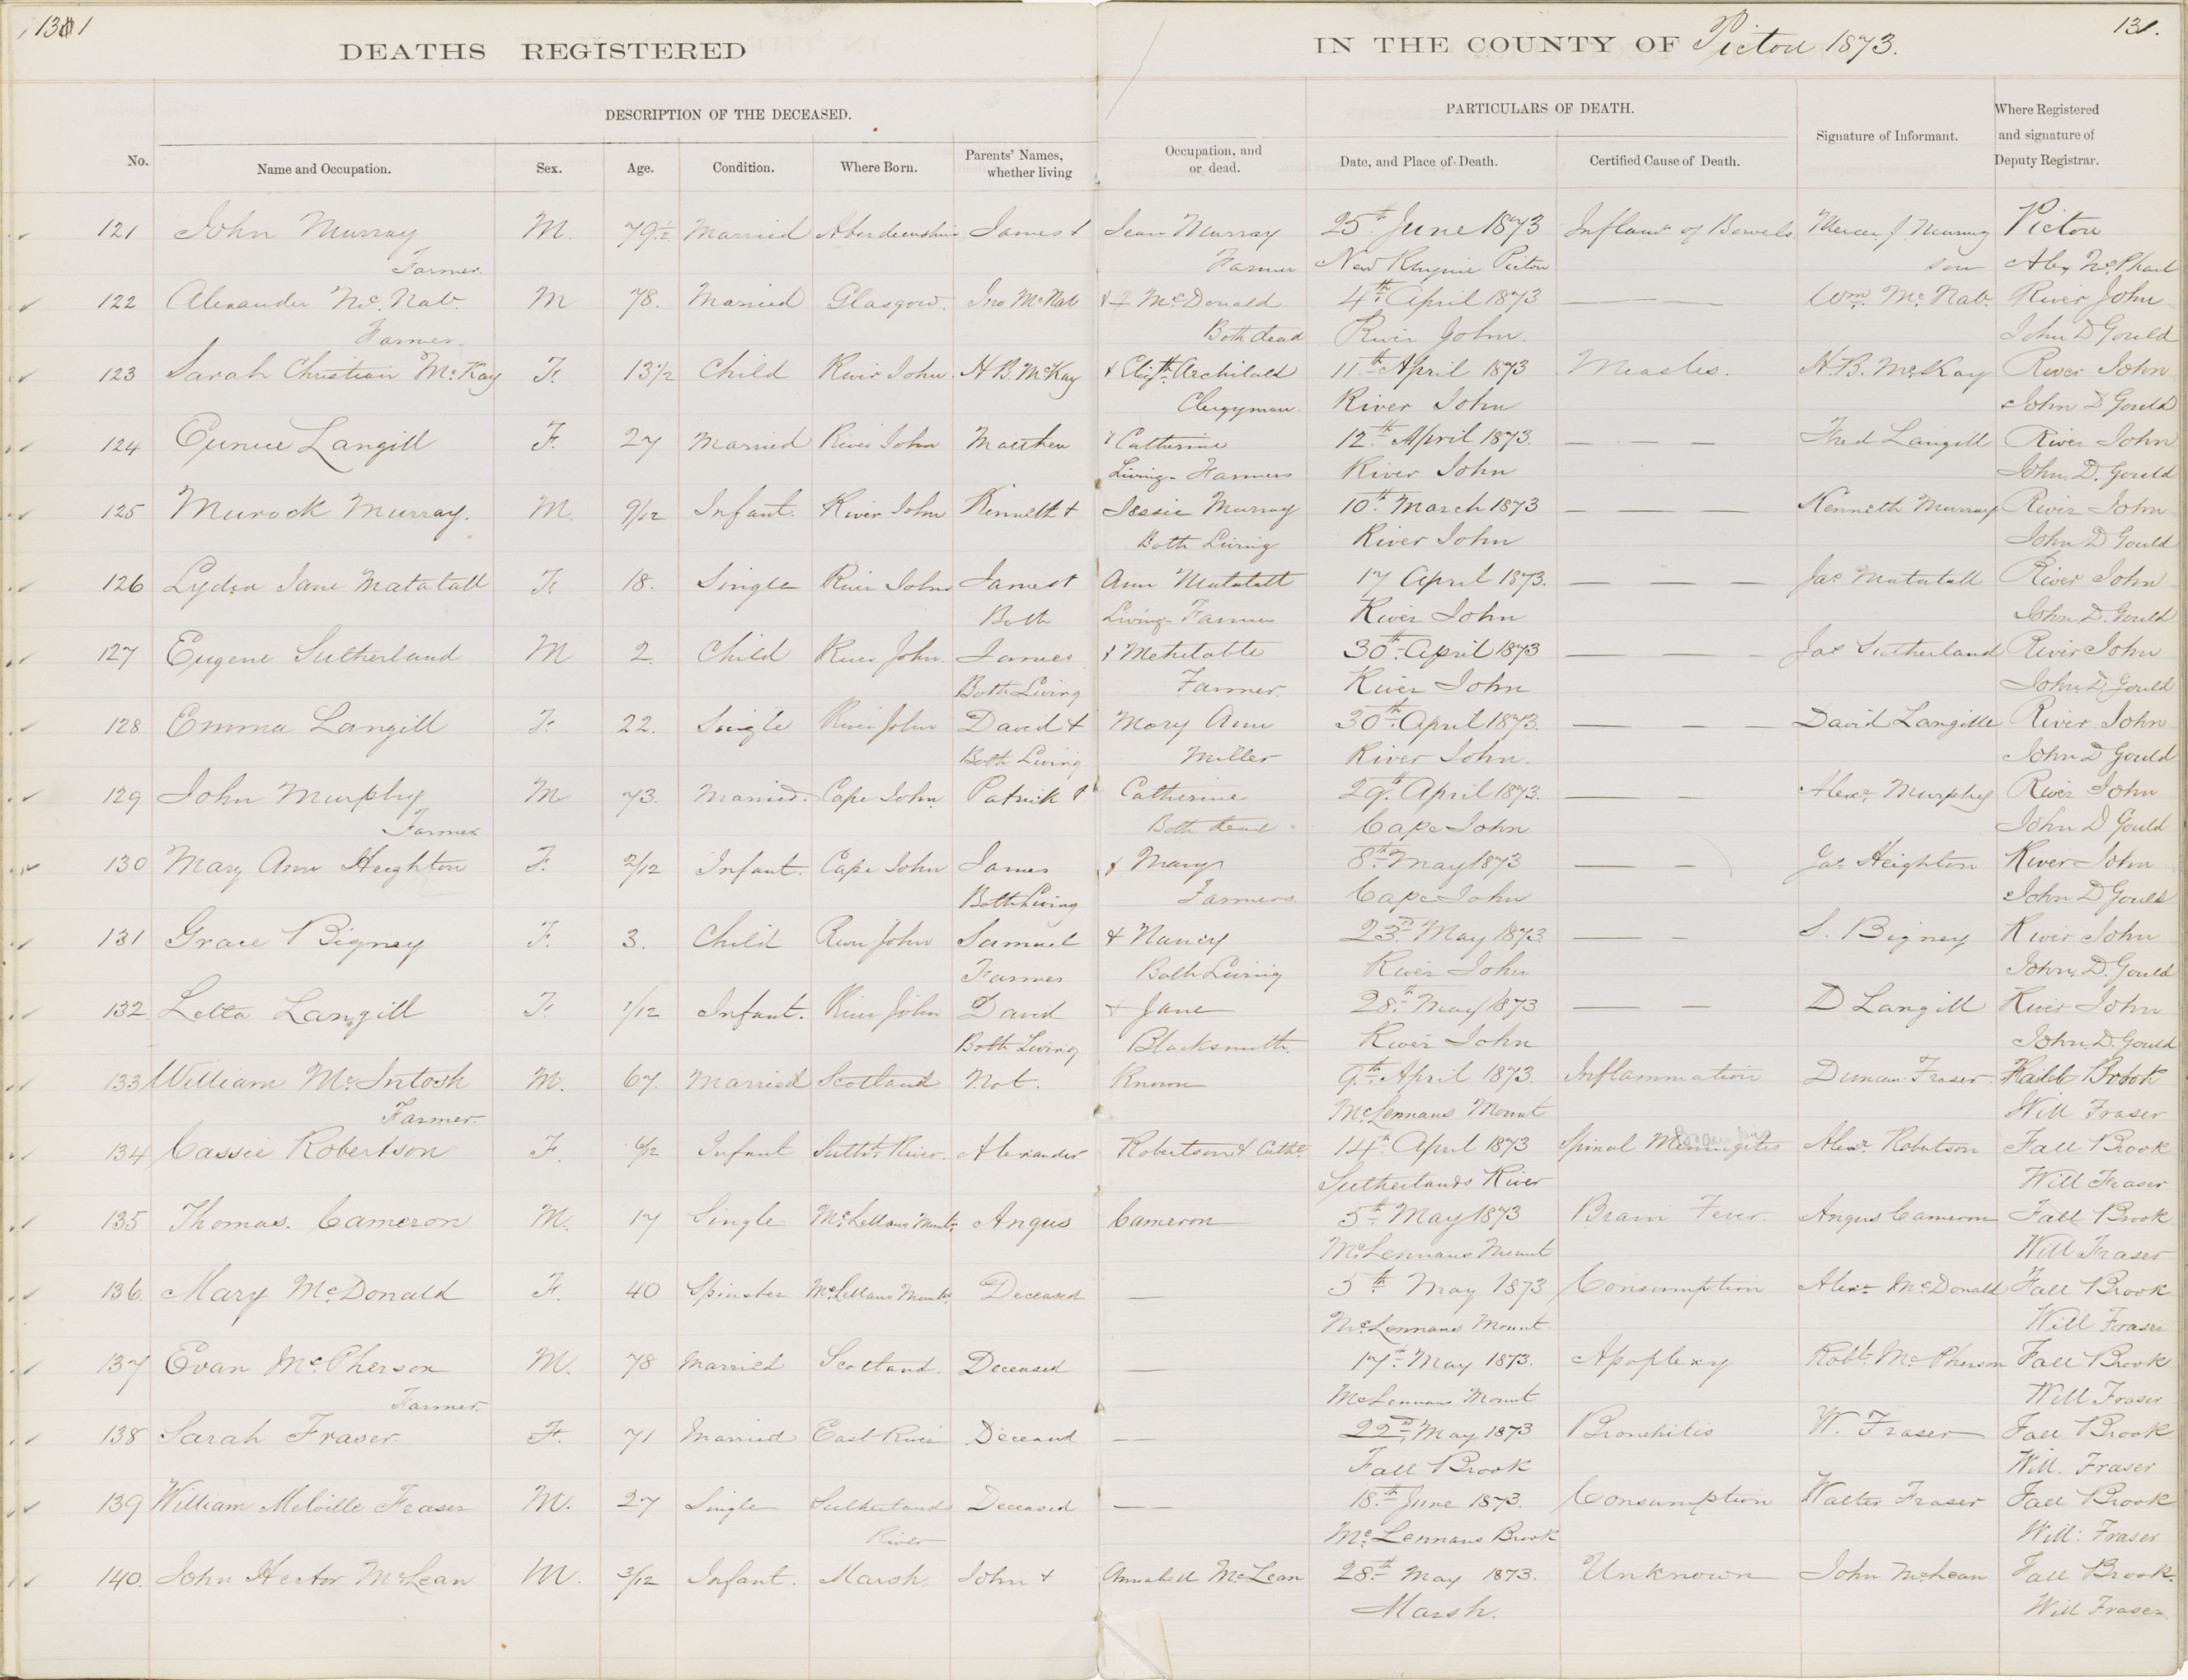 131 131.
DEATHS REGISTERED IN THE COUNTY OF Pictou 1873.
DESCRIPTION OF THE DECEASED. PARTICULARS OF DEATH. Where Registered
Signature of Informant. and signature of
No. Name and Occupation. Sex. Age. Condition. Where Born. Parents' Names, Occupation, and Date, and Place of Death. Certified Cause of Death. Deputy Registrar.
whether living or dead.
121 John Murray M. 79½ Married Aberdeenshire James + Jean Murray 25th June 1873 Inflamn of Bowels. Murray Pictou
Farmer. Farmer New Pictou son Alex McPhail
122 Alexander McNab M 78. Married Glasgow. Jno McNab + J McDonald 4th April 1873 — — — Wm. McNab. River John
Farmer. Both dead River John. John D Gould
123 Sarah Christian McKay F. 13½ Child River John. H B. McKay + Elizth Archibald 11th April 1873 Measles. H. B. McKay River John
Clergyman. River John John D Gould
124 Eunice Langill F. 27 Married River John Matthew + Catherine 12th April 1873. — — — Fred Langill River John
Living - Farmers River John John. D. Gould
125 Murdock Murray. M. 9/12 Infant. River John Kenneth + Jessie Murray 10th March 1873 — — — Kenneth Murray River John
Both Living River John John D Gould
126 Lydia Jane Matatall F. 18. Single River John James + Ann Matatall 17 April 1873. — — — Jas Matatall River John
Both Living - Farmer River John John D. Gould
127 Eugene Sutherland M 2. Child River John. James + Mehitable 30th April 1873 — — — Jas Sutherland River John
Both Living Farmer. River John John D Gould
128 Emma Langill F. 22. Single River John David + Mary Ann 30th April 1873. — — — David Langille River John
Both Living Miller River John. John D Gould
129 John Murphy M 73. Married. Cape John Patrick + Catherine 29th April 1873. — — Alexr. Murphy River John
Farmer Both dead Cape John John D Gould
130 Mary Ann Heighton F. 2/12 Infant. Cape John James + Mary 8th May 1873 — — Jas. Heighton River John
Both Living Farmers Cape John John D Gould
131 Grace Bigney F. 3. Child River John Samuel + Nancy 23rd May 1873. — — S. Bigney River John
Farmer Both Living River John John. D. Gould
132. Letta Langill F. 1/12 Infant. River John David + Jane 28th May 1873 — — D Langill River John
Both Living Blacksmith. River John John. D. Gould
133 William McIntosh M. 67. Married Scotland Not. Known 9th April 1873. Inflammation Duncan Fraser. Fall Brook
Farmer. McLennans Mount Will Fraser
134 Cassie Robertson F. 6/12 Infant Suthds River. Alexander Robertson & Cathe. 14th April 1873 Spinal Meningitis Alexr. Robertson Fall Brook
Sutherlands River Will Fraser
135 Thomas. Cameron M. 17 Single McLellans Mount Angus Cameron 5th May 1873 Brain Fever. Angus Cameron Fall Brook
McLennans Mount Will Fraser
136. Mary McDonald F. 40 Spinster McLellans Mount Deceased — 5th May 1873 Consumption Alexr McDonald Fall Brook
McLennans Mount. Will Fraser
137 Evan McPherson M. 78 Married Scotland. Deceased — 17th May 1873. Apoplexy Robt. McPherson Fall Brook
Farmer. McLennans Mount Will Fraser
138 Sarah Fraser. F. 71 Married East River Deceased — 22nd May 1873 Bronchitis W. Fraser Fall Brook
Fall Brook Will. Fraser
139 William Melville Fraser M. 27 Single Sutherlands Deceased — 18th June 1873. Consumption Walter Fraser Fall Brook
River McLennans Brook Will: Fraser
140. John Hector McLean M. 3/12 Infant. Marsh. John + Annabell McLean 28th May 1873. Unknown John McLean Fall Brook.
Marsh. Will Fraser.